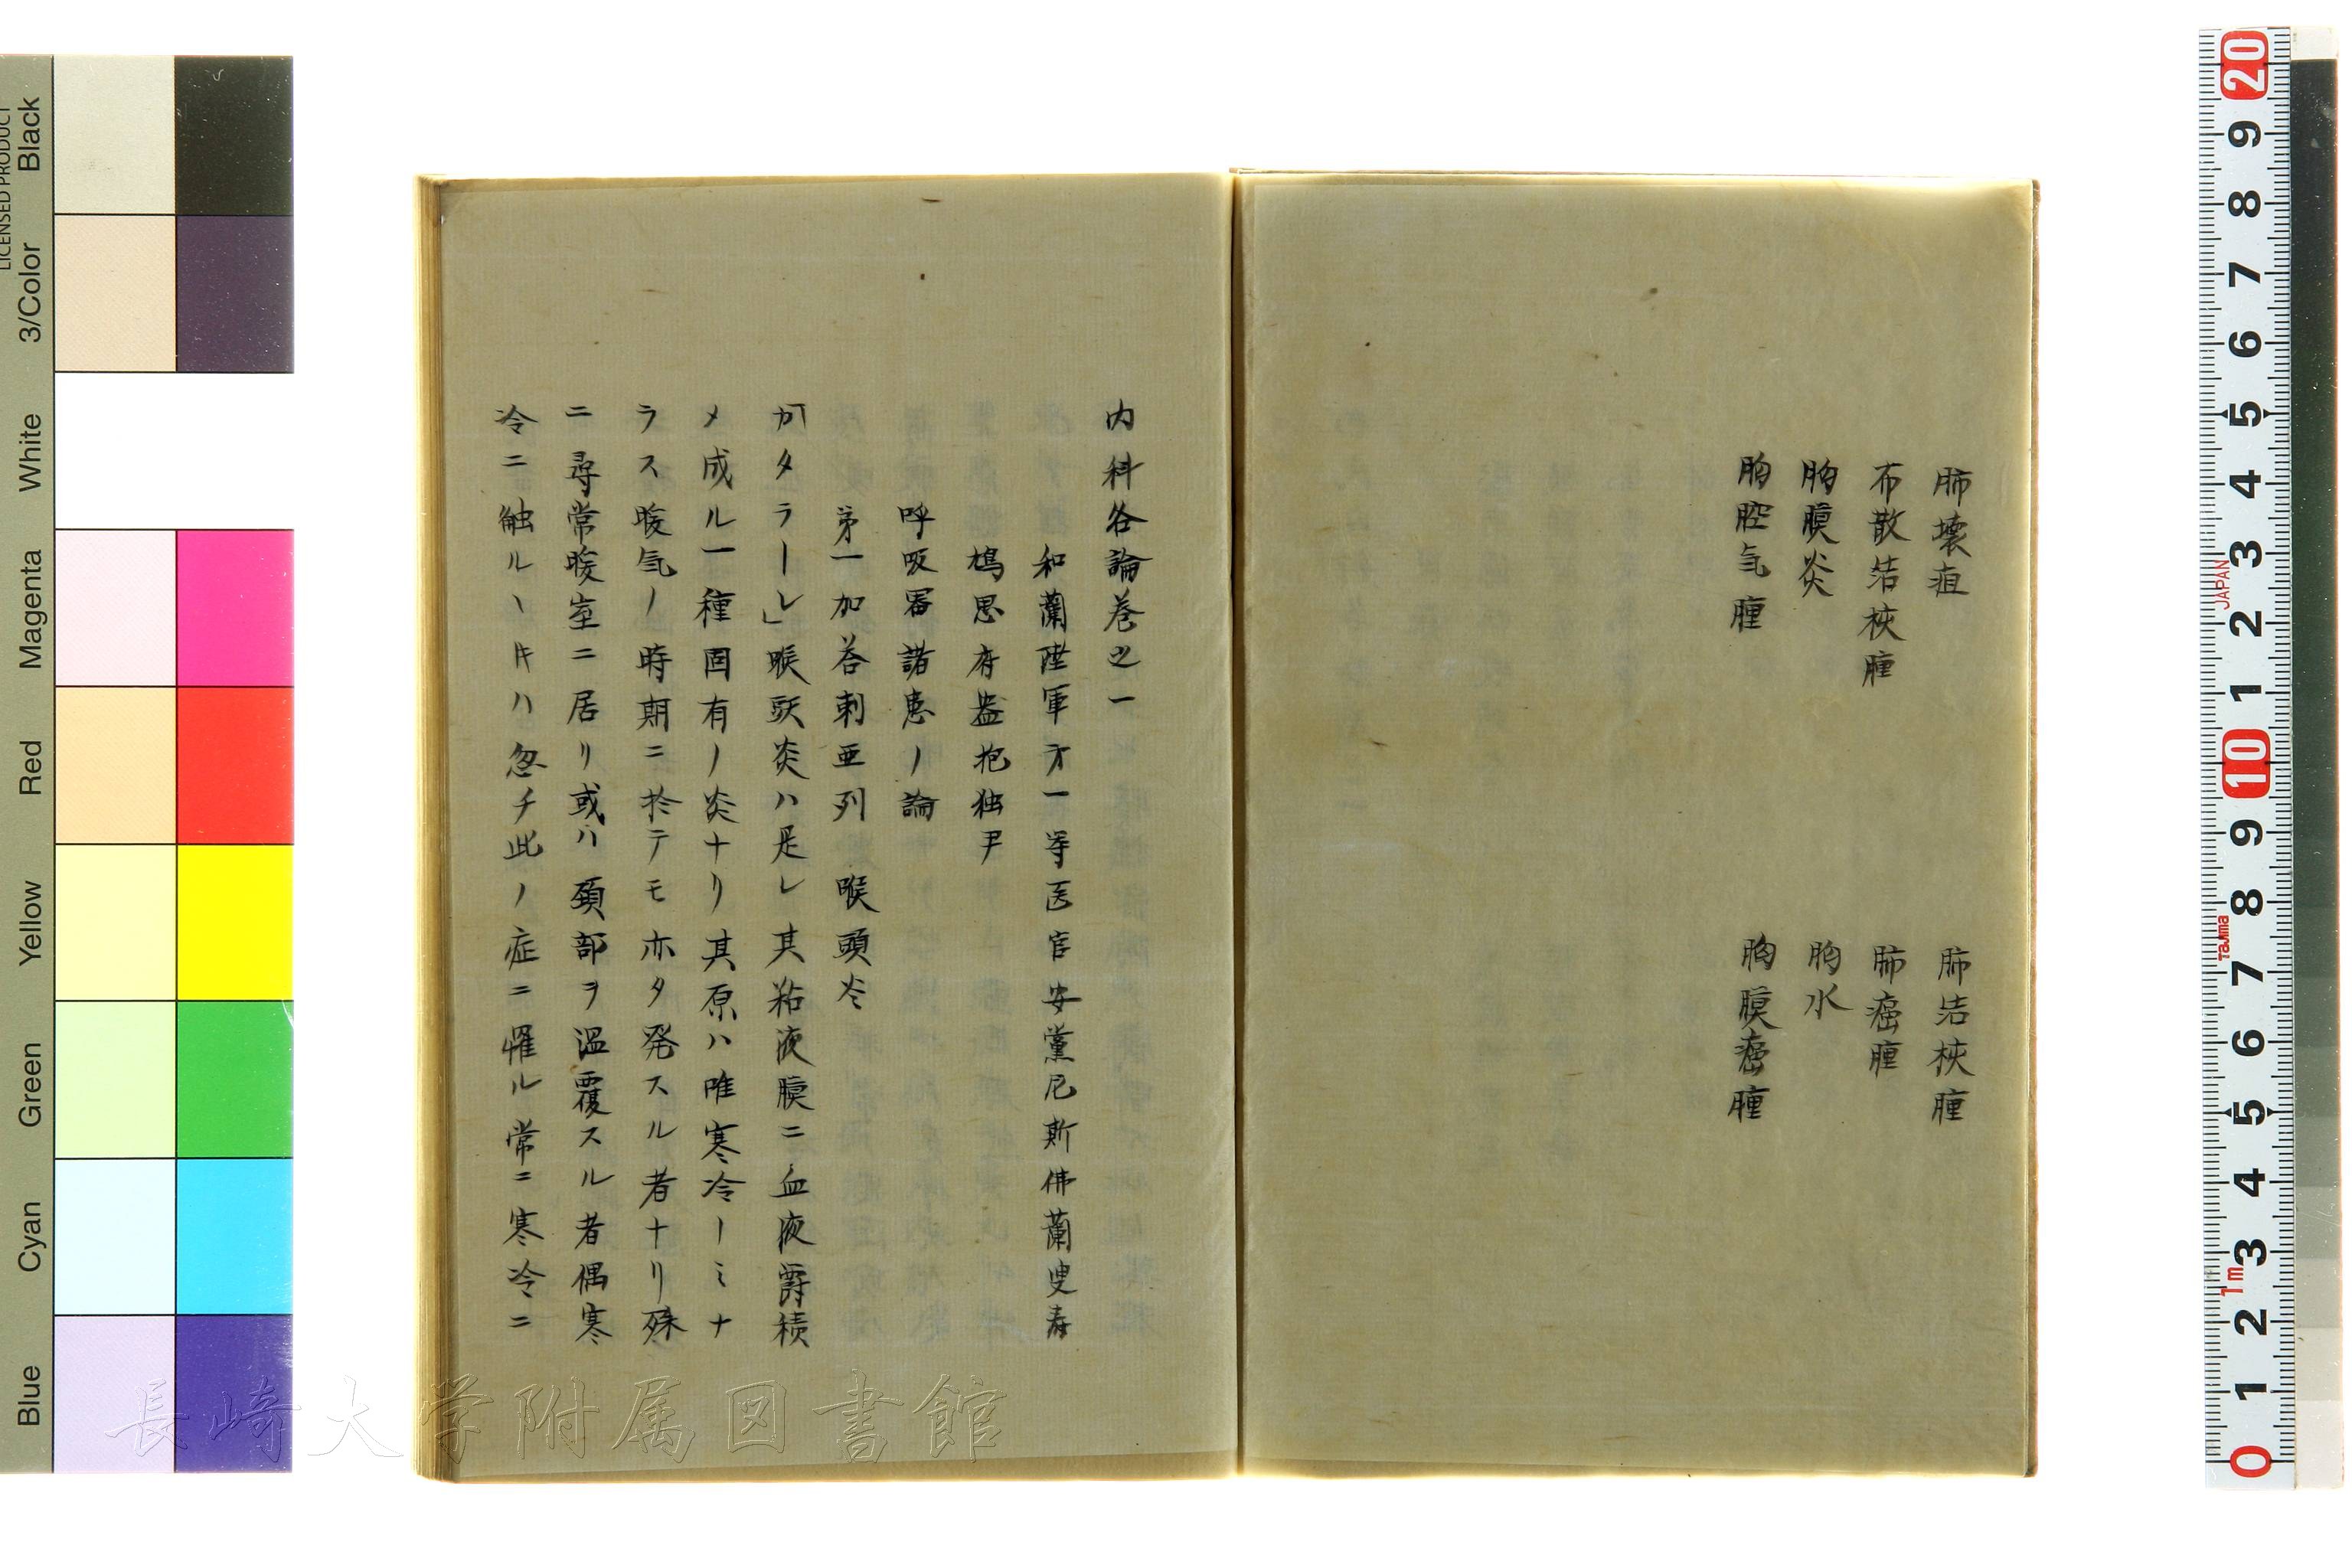 肺壊疽
肺結核腫
布散結核腫
肺癌腫
胸膜炎
胸水
胸腔气腫
胸膜癌腫
内科各論巻之一
和蘭陸軍第一等医官安黨尼斯佛蘭叟寿
鳩思府盎抱独尹
呼吸器諸患ノ論
第一加荅剌亜列 喉頭炎
「カタラーレ」喉頭炎ハ是レ其粘液膜ニ血液欝積
メ成ル一種固有ノ炎ナリ其原ハ唯寒冷ノミナ
ラス暖気ノ時期ニ於テモ亦タ発スル者ナリ殊
ニ尋常暖室ニ居リ或ハ頚部ヲ温覆スル者偶寒
冷ニ触ルヽ𪜈ハ忽チ此ノ症ニ罹ル常ニ寒冷ニ
長崎大学附属図書館
LICENSED PRODUCT
Black
3/Color
White
Magenta
Red
Yellow
Green
Cyan
Blue
20
9
8
7
6
5
4
3
2
1
10
9
8
7
6
5
4
3
2
1
0
JAPAN
Tajima
1m